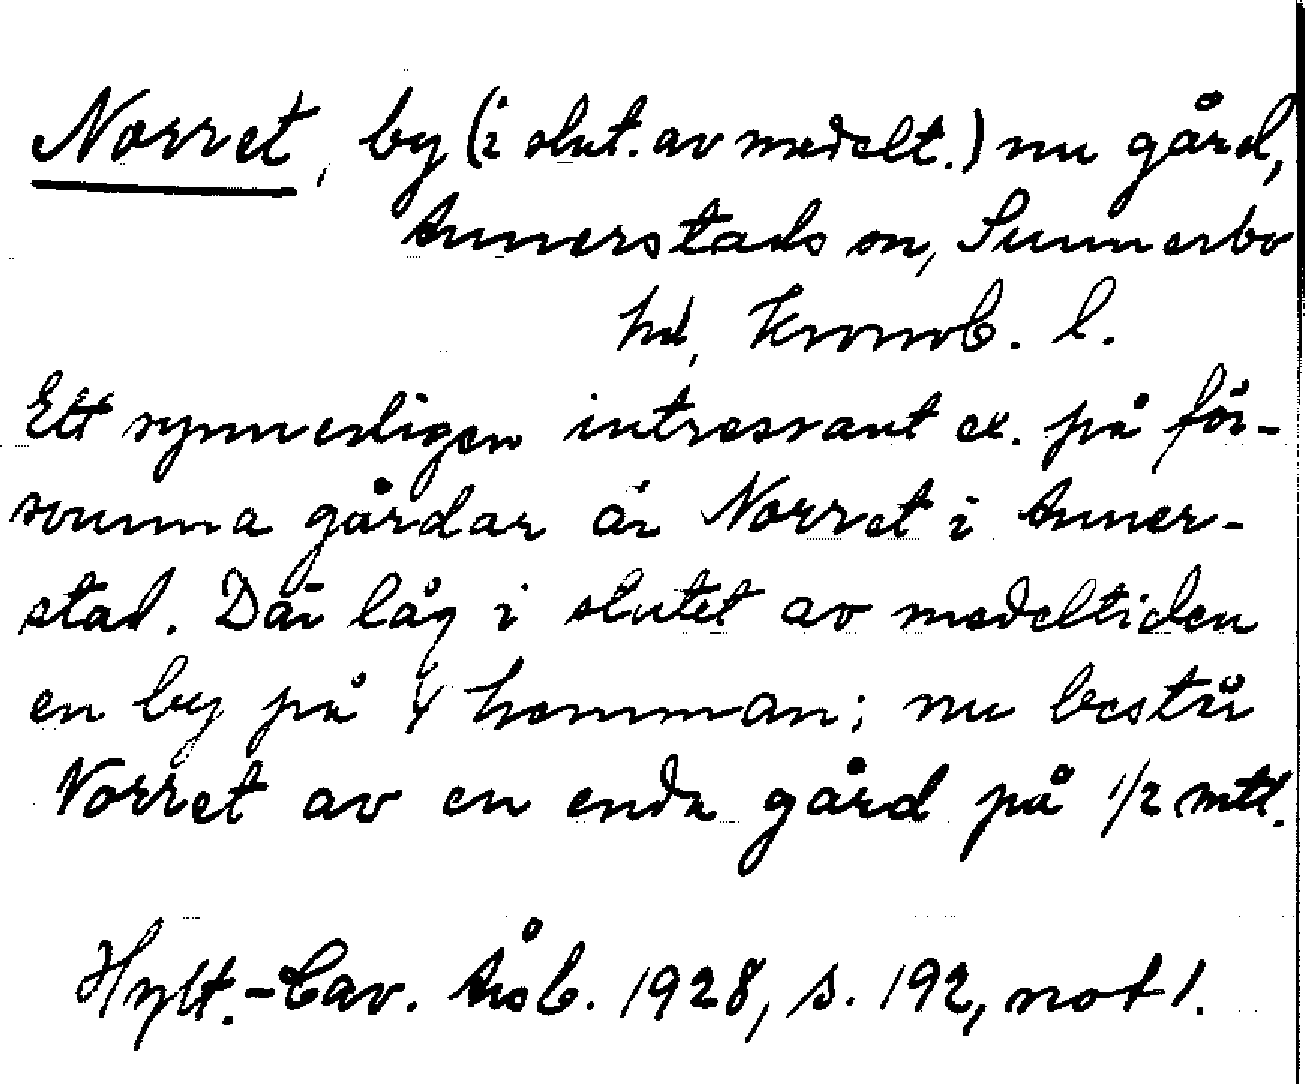 Norret, by (i slut. av medelt.) nu gård,
Annerstads sn, Sunnerbo
hd, Kronob. l.
Ett synnerligen intressant ex. på för-
svunna gårdar är Norret i Anner-
stad. Där låg i slutet av medeltiden
en by på 4 hemman; nu består
Norret av en enda gård på 1/2 mtl.
Hylt.-Cav. Årsb. 1928, s. 192, not 1.